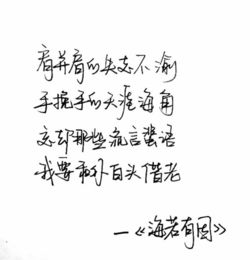 肩并肩的矢志不渝
手挽手的天涯海角
忘却那些流言蜚语
我要和你白头偕老
—《海若有因》